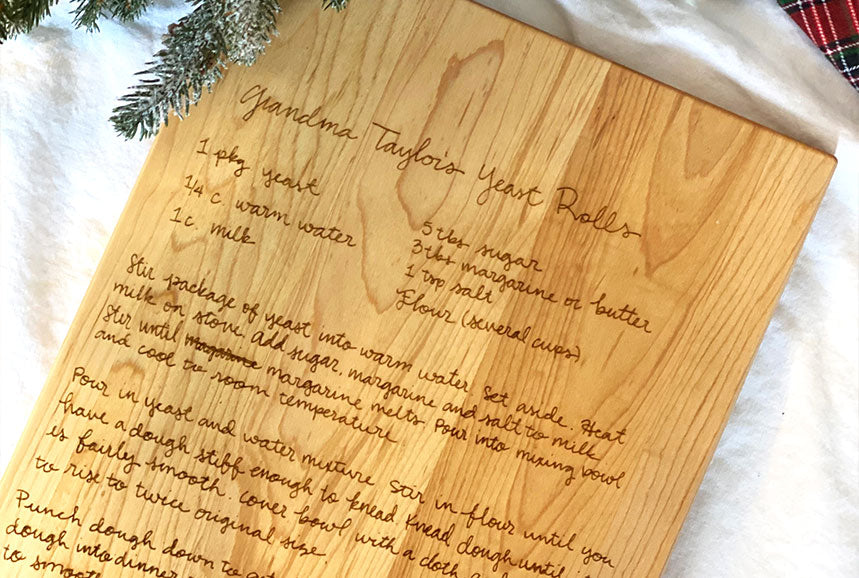 Grandma Taylor's Yeast Rolls
1 pkg yeast
1/4 c. warm water
1 c. milk
5 tbs sugar
3 tbs margarine or butter
1 tsp salt
Flour (several cups)
Stir package of yeast into warm water. Set aside. Heat
milk on stove. Add sugar, margarine and salt to milk.
Stir until margarine melts. Pour into mixing bowl
and cool to room temperature.
Pour in yeast and water mixture. Stir in flour until you
have a dough stiff enough to knead. Knead dough until
is fairly smooth. Cover bowl with a cloth
to rise to twice original size.
Punch dough down to
dough into dinner
to